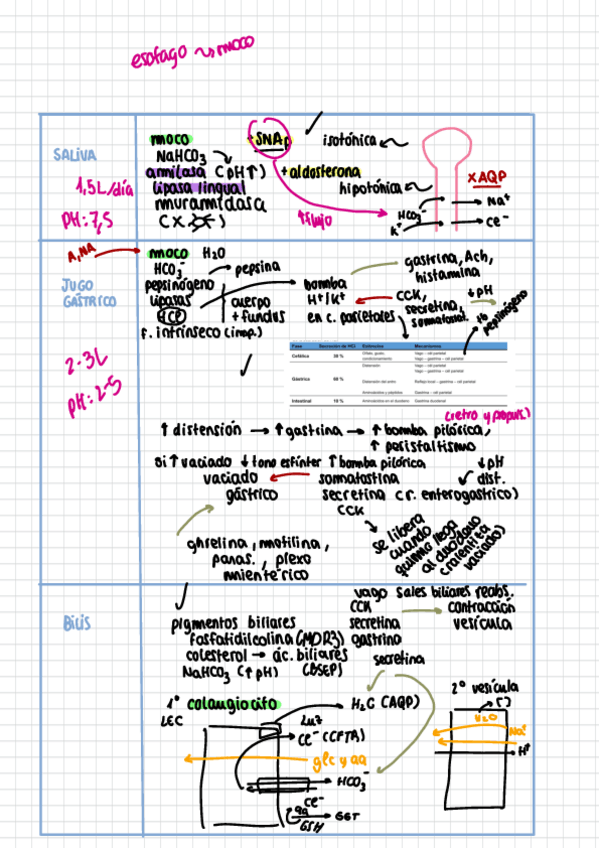 esofago ~> moco
SALIVA
1,5L/día
PH: 7,5
moco
NaHCO3
amilasa (pH↑)
lipasa lingual
muramidasa
+SNAp
+aldosterona
isotónica
hipotónica
↑flujo
xAQP
HCO3-
K+
Na+
Cl-
JUGO GÁSTRICO
2-3L
pH: 2-5
A, NA
moco H2O
HCO3-
pepsinógeno
pepsina
lipasas
HCl
cuerpo
+ fundus
F. intrínseco (imp.)
bomba
H+/K+
en c. parietales
gastrina, Ach,
histamina
CCK,
secretina,
somatostat.
↓pH
pepsinógeno
Fase Secreción de HCl Estimulos Mecanismos
Cefálica 30 % Olfato, gusto, condicionamiento Vago – cél parietal
Vago – gastrina – cél parietal
Gástrica 60 % Distensión Vago – cél parietal
Vago – gastrina – cél parietal
Distensión del antro Reflejo local – gastrina – cél parietal
Aminoácidos y péptidos Gastrina – cél parietal
Intestinal 10 % Aminoácidos en el duodeno Gastrina duodenal
(retro y propuls.)
↑ distensión → ↑ gastrina → ↑ bomba pilórica,
↑ peristaltismo
Si ↑ vaciado ↓ tono esfínter ↑ bomba pilórica
↓pH
↙dist.
vaciado
gástrico
somatostina
secretina (r. enterogástrico)
CCK
se libera
cuando
quimo llega
al duodeno
(ralentiza
vaciado)
ghrelina, motilina,
paras., plexo
mientérico
BILIS
pigmentos biliares
fosfatidilcolina (MDR3)
colesterol → ác. biliares
NaHCO3 (↑pH) (BSEP)
vago sales biliares reabs.
CCK
secretina
gastrina
contracción
vesícula
secretina
1º colangiocito
LEC
LUZ
H2O (AQP)
Cl- (CFTR)
glc y aa
HCO3-
Cl-
aa
GSH
GGT
2º vesícula
↑[ ]
H2O
Na+
H+